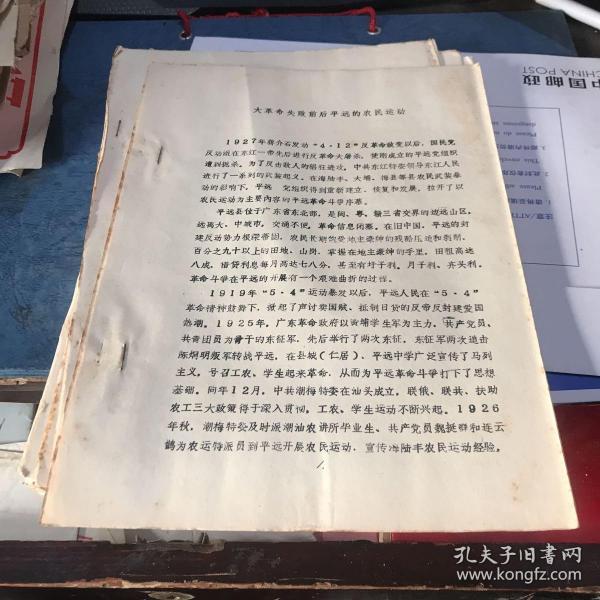 大革命失败前后平远的农民运动
1927年蒋介石发动“4·12”反革命政变以后，国民党
反动派在东江一带先后进行反革命大屠杀，使刚成立的平远党组织
遭到扼杀。为了反击敌人的猖狂进攻，中共东江特委领导东江人民
进行了一系列的武装起义。在海陆丰、大埔、梅县等县农民武装暴
动的影响下，平远 党组织得到重新建立、恢复和发展，拉开了以
农民运动为主要内容的平远革命斗争序幕。
平远县位于广东省东北部，是闽、粤、赣三省交界的边远山区，
远离大、中城市，交通不便，革命信息闭塞。在旧中国，平远的封
建反动势力根深蒂固，农民长期饱受地主豪绅的残酷压迫和剥削，
百分之九十以上的田地、山岗，掌握在地主豪绅的手里，田租高达
八成，借贷利息每月高达七八分，甚至有圩子利、月子利、夯头利。
革命斗争在平远的开展有一个艰难曲折的过程。
1919年“5·4”运动暴发以后，平远人民在“5·4”
革命精神鼓舞下，掀起了声讨卖国贼、抵制日货的反帝反封建爱国
热潮。1925年，广东革命政府以黄埔学生军为主力，共产党员、
共青团员为骨干的东征军，先后举行了两次东征。东征军两次追击
陈炯明叛军转战平远，在县城（仁居）、平远中学广泛宣传了马列
主义，号召工农、学生起来革命，从而为平远革命斗争打下了思想
基础。同年12月，中共潮梅特委在汕头成立，联俄、联共、扶助
农工三大政策得于深入贯彻，工农、学生运动不断兴起。1926
年秋，潮梅特委及时派潮汕农讲所毕业生、共产党员魏挺群和连云
鹤为农运特派员到平远开展农民运动，宣传海陆丰农民运动经验，
1.
中国邮政
CHINA POST
孔夫子旧书网
www.kongfz.com